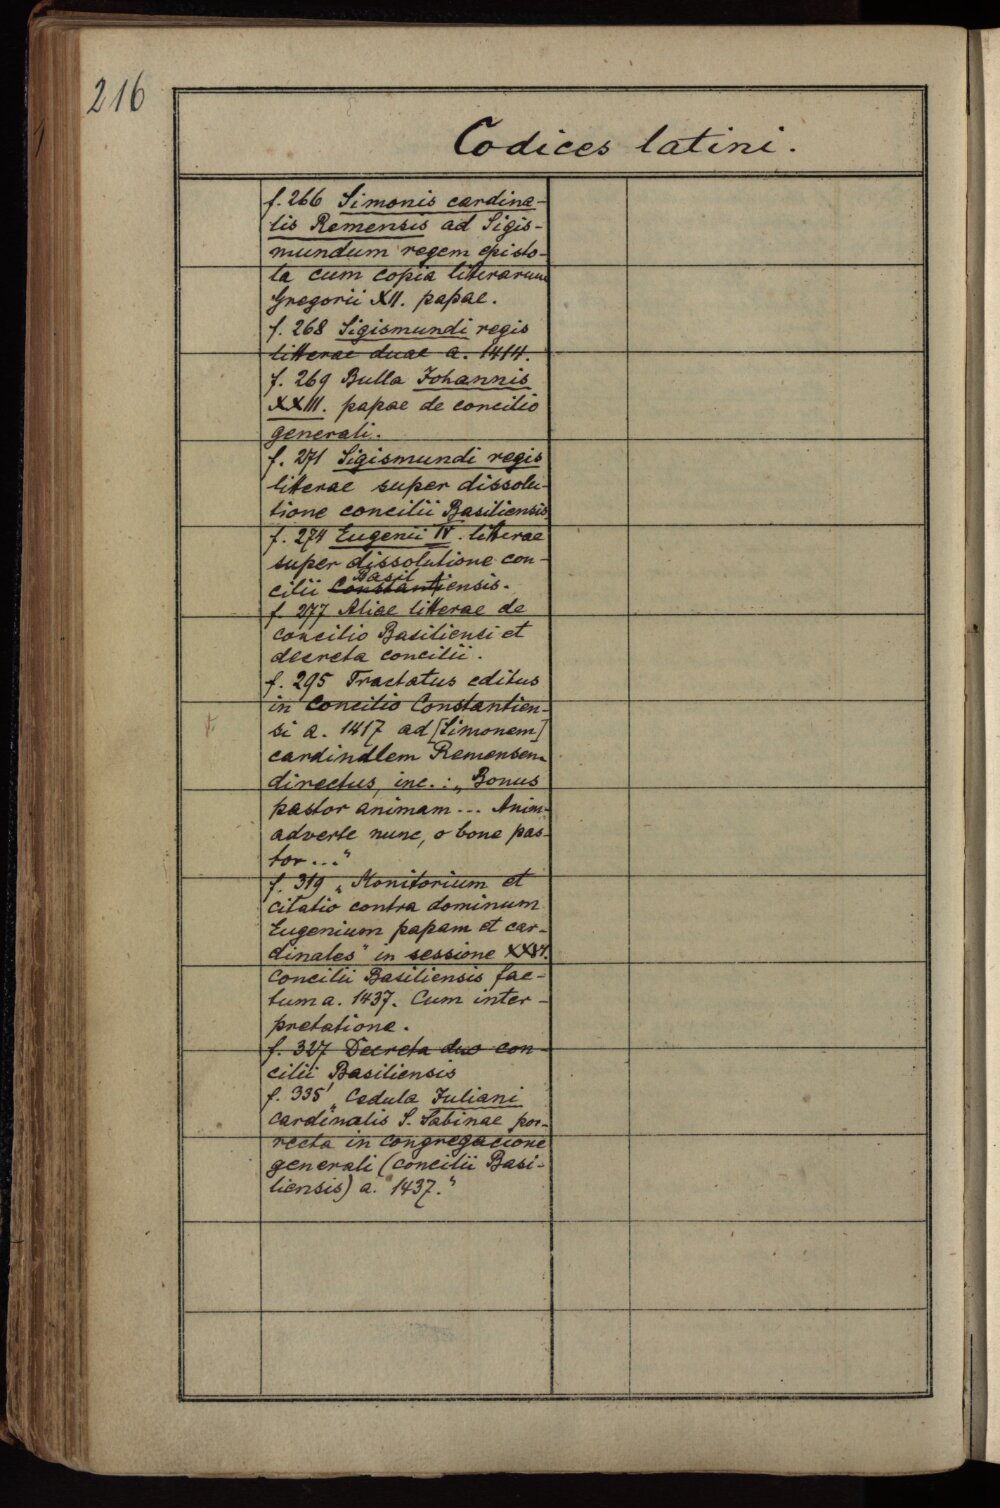 216
Codices latini.
f. 266 Simonis cardina-
lis Remensis ad Sigis-
mundum regem episto-
la cum copia literarum
Gregorii XII. papae.
f. 268 Sigismundi regis
litterae duae a. 1414.
f. 269 Bulla Johannis
XXIII. papae de concilio
generali.
f. 271 Sigismundi regis
litterae super dissolu-
tione concilii Basiliensis
f. 274 Eugenii IV. litterae
super dissolutione con-
Basil
cilii Constantiensis.
f. 277 Aliae litterae de
concilio Basiliensi et
decreta concilii.
f. 295 Tractatus editus
in Concilio Constantien-
si a. 1417 ad [Simonem]
cardinalem Remensem
directus, inc.: „Bonus
pastor animam... Anim-
adverte nunc, o bone pas-
tor..."
f. 319 „Monitorium et
citatio contra dominum
Eugenium papam et car-
dinales" in sessione
Concilii Basiliensis fac-
tum a. 1437. Cum inter-
pretatione.
f. 327 Decreta duo con-
cilii Basiliensis
f. 335' „Cedula Juliani
cardinalis S. Sabinae por-
recta in congregacione
generali (concilii Basi-
liensis) a. 1437."